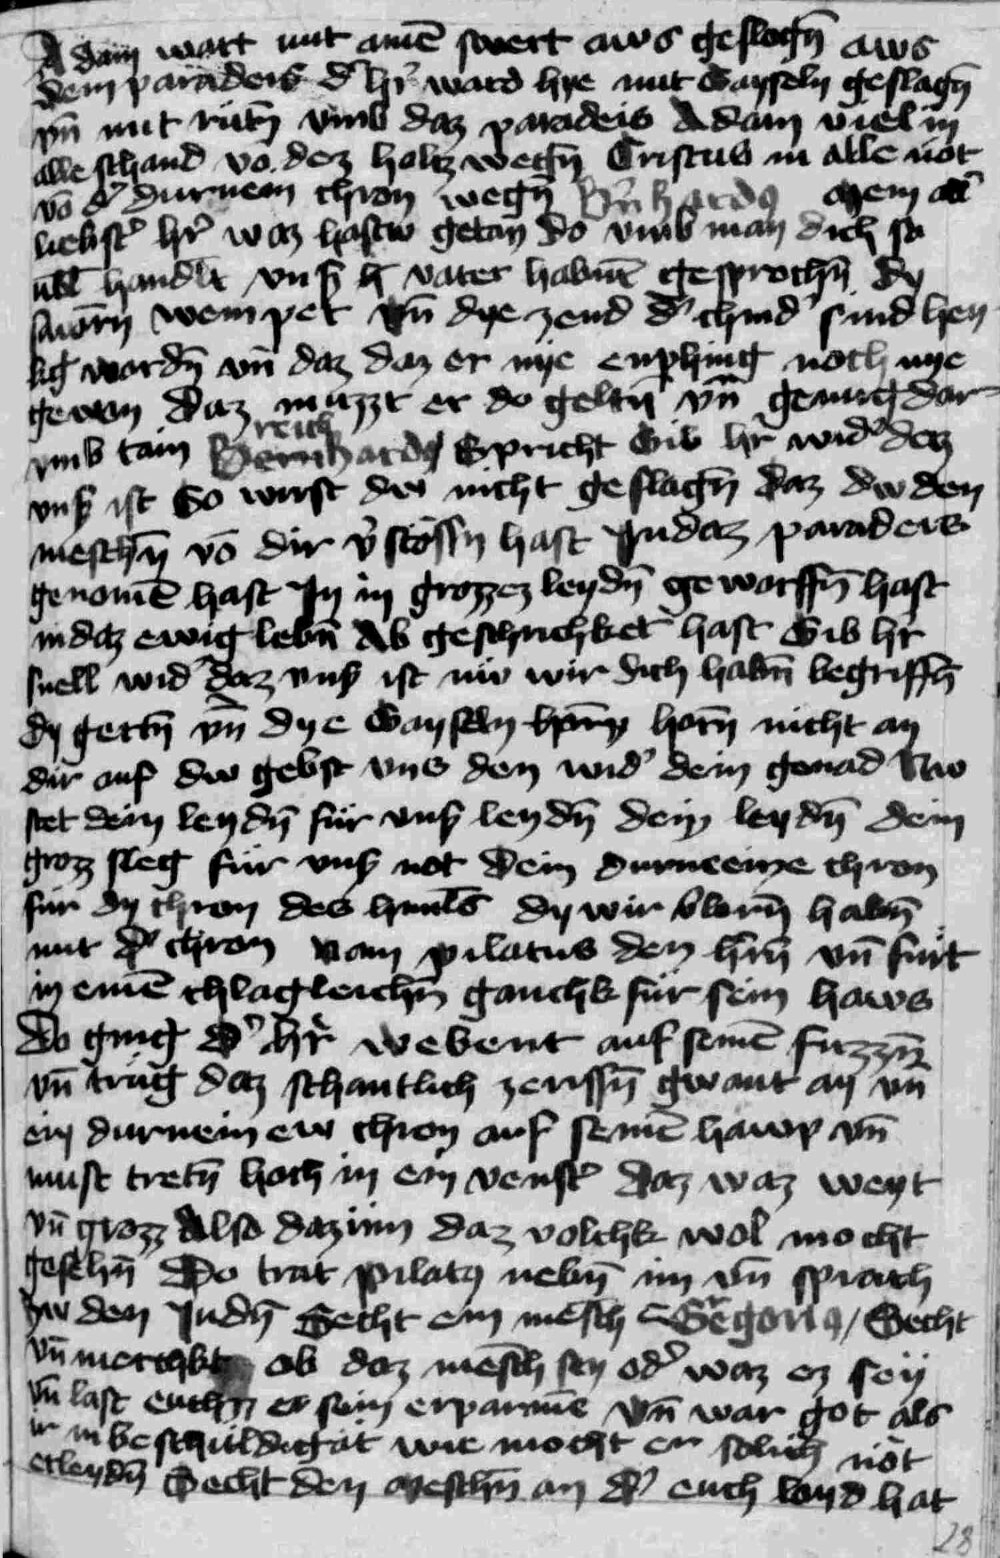 Adam wart mit ainē swert aws geslogn̄ aws
dem paradeis d' hr̄ ward hye mit Gayseln geslagn̄
vn̄ mit rutn̄ vmb daz paradeis Adam viel in
alle schand vō dez holtz wegn̄ Cristus in alle not
vō d' durnein chron wegn̄ Bn̄hardq mein all'
liebst' hr̄ waz hastw getan do vmb man dich so
übl handlt vnsß h vater habnt gesprochn̄ dy
sawrn̄ wemper vn̄ dye zend d' chind' sind hey
lig wordn̄ vn̄ daz daz er nye enphing noch nye
gewan daz muzzt er do geltn̄ vn̄ genueg dar
vmb tain reich Bernhardq Spricht Gib hr̄ wid' daz
vnß ist So wirst dw nicht geslagn̄ daz dw den
meschn̄ vō dir v'stossn hast In daz paradeis
genomē hast In in grozzez leydn̄ geworffn̄ hast
in daz ewig lebn̄ Ab geschrichket hast Gib hr̄
snell wid' daz vnß ist nw wir dich habn̄ begriffn̄
dy gertn̄ vn̄ dye Gayseln horn̄ nicht an
dir auf dw gebst vns den wid' dein genad Nw
stet dein leydn̄ für vnß leydn̄ dein leydn̄ dein
groz sleg für vnß not dein durneeine chron
für dy chron des himls dy wir v'lorn̄ habn̄
mit d' chron nam pilatus den hrn̄ vn̄ furt
in einē chlagleichn̄ gauchk für sein haws
Do ging d' hr̄ webent auf seinē fuzzn̄
vn̄ trug daz schantlich zerissn̄ gwant an vn̄
ein durnein ew chron auf seinē hawp vn̄
must tretn̄ hoch in ein venst' daz waz weyt
vn̄ groz Also daz inn daz volchk wol mocht
gesehn̄ Do trat pilatq nebn̄ im vn̄ sprach
zw den Judn̄ Secht ein mesch Gregoriq / Secht
vn̄ merchkt ob daz mesch sey od' waz ez sey
vn̄ last euchz er sein erparmē vn̄ war got als
ir in beschuldigat wie mocht er solich not
erleydn̄ Secht den meschn̄ an d' euch loyd hat
28